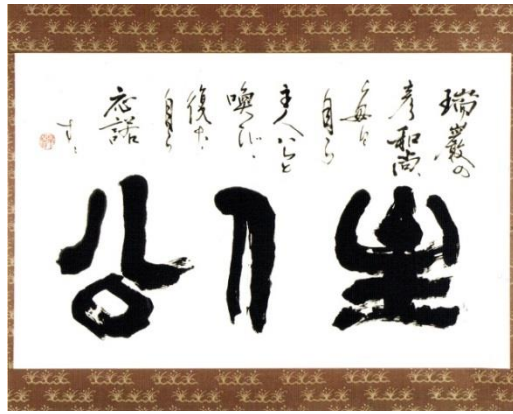 瑞巌の
彦和尚、
毎日
自ら
主人公と
喚び、
復た
自ら
応諾
す、
主人公